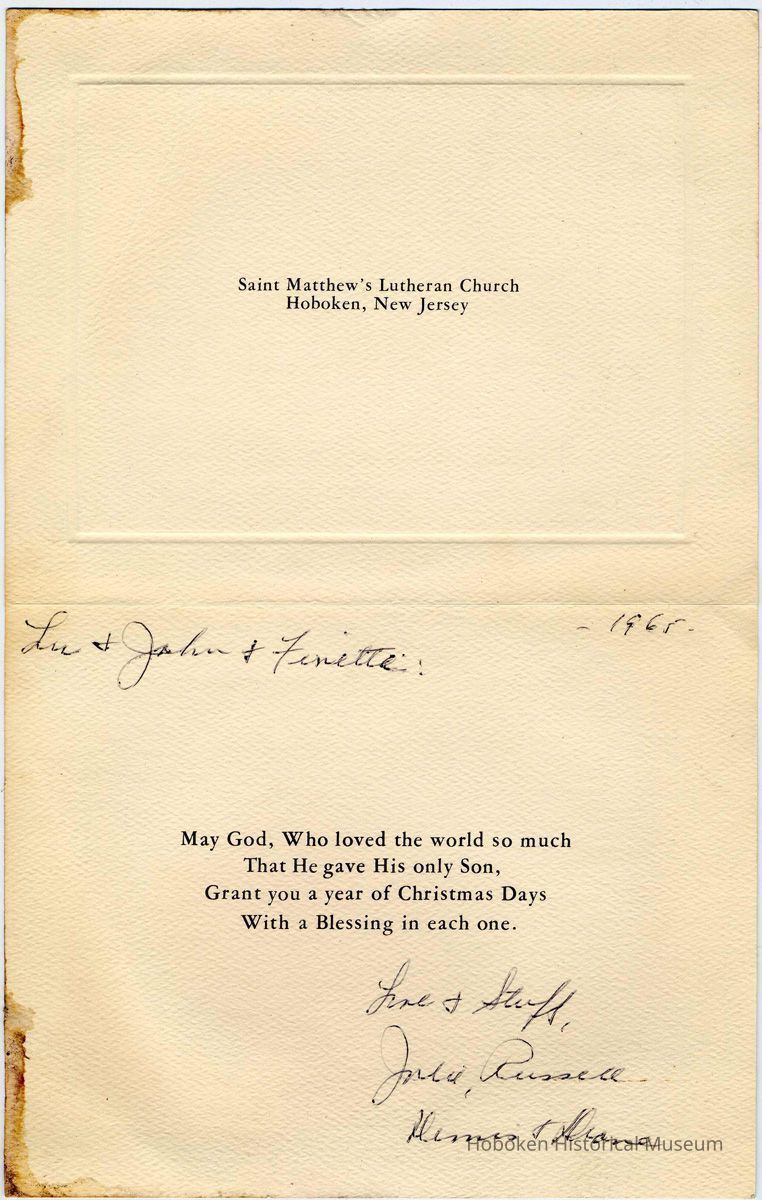 Saint Matthew's Lutheran Church
Hoboken, New Jersey
- 1965.
Lu & John & Finette:
May God, Who loved the world so much
That He gave His only Son,
Grant you a year of Christmas Days
With a Blessing in each one.
Love & Stuff,
Russell
& Diana
Hoboken Historical Museum